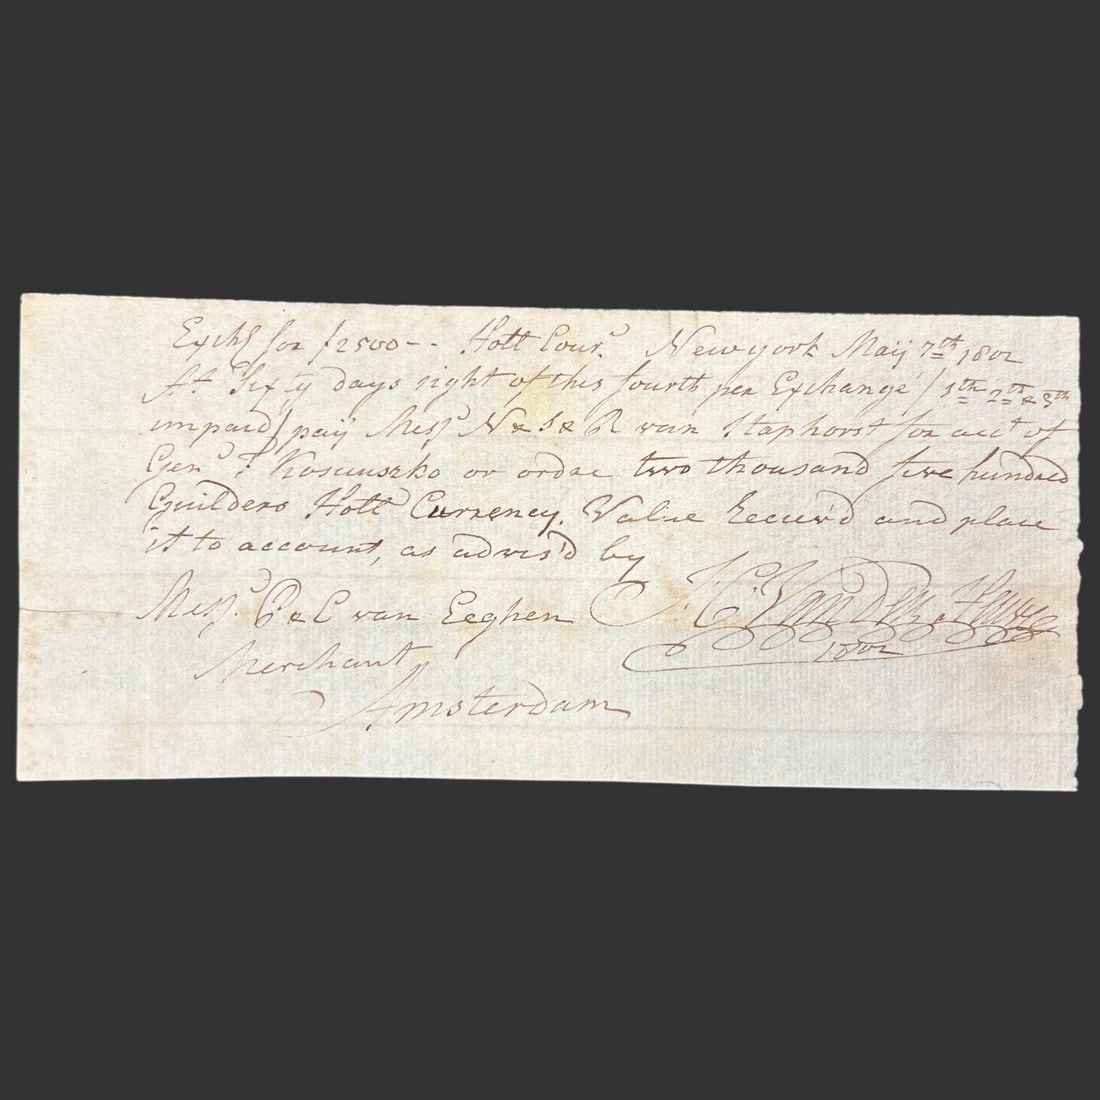 Exchg for f2500-- Holl Court. Newyork Maij 7th 1802
At Sixty days sight of this fourth per Exchange / 1th 2th & 3th
unpaid / paij Messrs N & J & R van Staphorst for acct of
Genl T. Kosciuszko or order two thousand five hundred
Guilders Holl Currency. Value Receiv'd and place
it to account, as advis'd by
Messrs P & C van Eeghen
Merchant
Amsterdam
1802